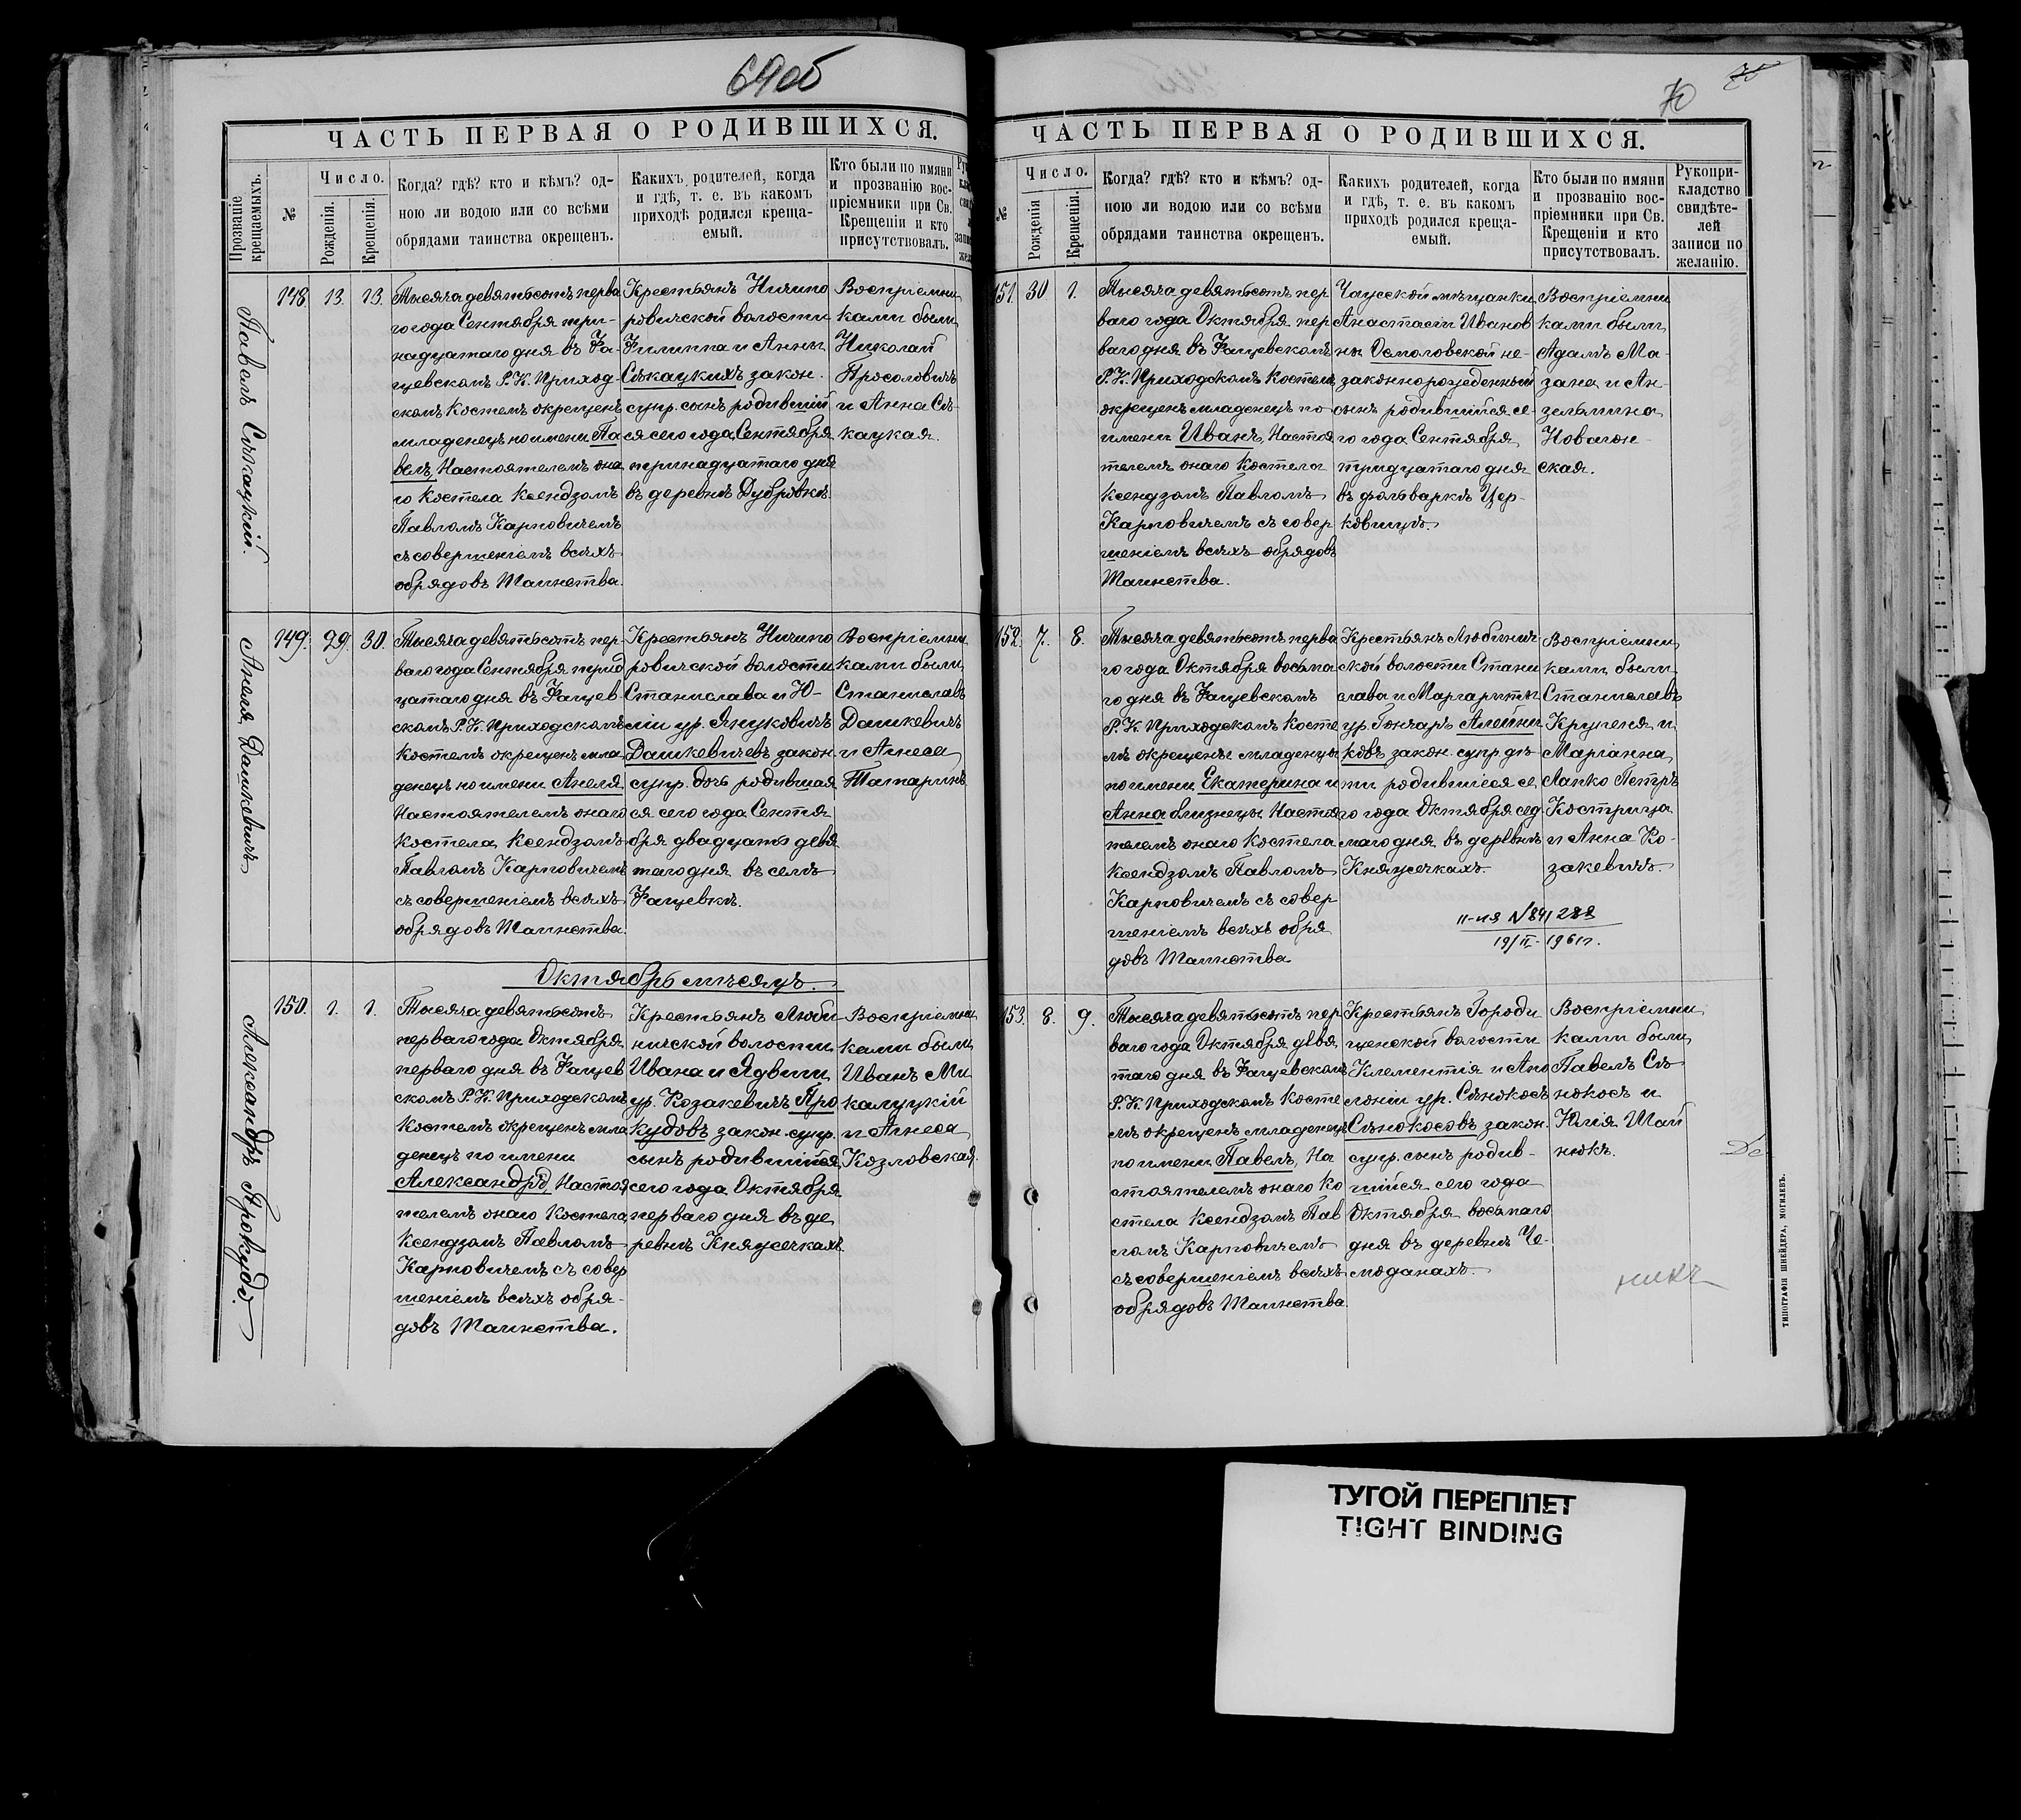 69об
ЧАСТЬ ПЕРВАЯ О РОДИВШИХСЯ.
Прозваніе крещаемыхъ.
№
Число.
Рожденія.
Крещенія.
Когда? гдѣ? кто и кѣмъ? од-
ною ли водою или со всѣми
обрядами таинства окрещенъ.
Какихъ родителей, когда
и гдѣ, т. е. въ какомъ
приходѣ родился креща-
емый.
Кто были по имяни
и прозванію вос-
пріемники при Св.
Крещеніи и кто
присутствовалъ.
Павелъ Сѣкацкій.
148. 13. 13.
Тысяча девятьсотъ перва
го года Сентября три-
надцатаго дня въ Фа-
щевскомъ Р.К. Приход-
скомъ Костелѣ окрещенъ
младенецъ по имени Па
велъ, Настоятелемъ она
го Костела Ксендзомъ
Павломъ Карповичемъ
съ совершеніемъ всѣхъ
обрядовъ Таинства.
Крестьянъ Ничипо
ровичской волости
Филиппа и Анны
Сѣкацкихъ закон.
супр. сынъ родившій
ся сего года Сентября
тринадцатаго дня
въ деревнѣ Дубровкѣ
Воспріемни
ками были
Николай
Просоловичъ
и Анна Сѣ-
кацкая.
Анеля Дашкевичъ
149. 29. 30.
Тысяча девятьсотъ пер-
ваго года Сентября трид
цатаго дня въ Фащев-
скомъ Р.К. Приходскомъ
Костелѣ окрещенъ мла-
денецъ по имени Анеля
Настоятелемъ онаго
Костела Ксендзомъ
Павломъ Карповичемъ
съ совершеніемъ всѣхъ
обрядовъ Таинства.
Крестьянъ Ничипо
ровичской волости
Станислава и Ю-
ліи ур. Януковичъ
Дашкевичевъ закон.
супр. дочь родившая
ся сего года Сентя
бря двадцать девя
таго дня въ селѣ
Фащевкѣ.
Воспріемни
ками были
Станиславъ
Дашкевичъ
и Агнеса
Татаринъ
Октябрь мѣсяцъ.
Александръ Прокудо.
150. 1. 1.
Тысяча девятьсотъ
перваго года Октября
перваго дня въ Фащев
скомъ Р.К. Приходскомъ
Костелѣ окрещенъ мла
денецъ по имени
Александръ, Настоя
телемъ онаго Костела
Ксендзомъ Павломъ
Карповичемъ съ совер
шеніемъ всѣхъ обря-
довъ Таинства.
Крестьянъ Люби
ничской волости
Ивана и Ядвиги
ур. Козакевичъ Про
кудовъ закон. супр.
сынъ родившійся
сего года Октября
перваго дня въ де
ревнѣ Княжечкахъ
Воспріемни
ками были
Иванъ Ми
калуцкій
и Агнеса
Козловская.
70
ЧАСТЬ ПЕРВАЯ О РОДИВШИХСЯ.
№
Число.
Рожденія
Крещенія.
Когда? гдѣ? кто и кѣмъ? од-
ною ли водою или со всѣми
обрядами таинства окрещенъ.
Какихъ родителей, когда
и гдѣ, т. е. въ какомъ
приходѣ родился креща-
емый.
Кто были по имяни
и прозванію вос-
пріемники при Св.
Крещеніи и кто
присутствовалъ.
Рукопри-
кладство
свидѣте-
лей
записи по
желанію.
151. 30 1.
Тысяча девятьсотъ пер
ваго года Октября пер
ваго дня въ Фащевскомъ
Р.К. Приходскомъ Костелѣ
окрещенъ младенецъ по
имени Иванъ, Настоя
телемъ онаго Костела
Ксендзомъ Павломъ
Карповичемъ съ совер
шеніемъ всѣхъ обрядовъ
Таинства.
Чаусской мѣщанки
Анастасіи Иванов
ны Осмоловской не-
законнорожденный
сынъ родившійся се-
го года Сентября
тридцатаго дня
въ фольваркѣ Цер-
ковищѣ.
Воспріемни
ками были
Адамъ Ма-
зана и Ан-
зельмина
Новагон-
ская.
152. 7. 8.
Тысяча девятьсотъ перва
го года Октября восьма
го дня въ Фащевскомъ
Р.К. Приходскомъ Косте
лѣ окрещены младенцы
по имени Екатерина и
Анна близнецы Настоя
телемъ онаго Костела
Ксендзомъ Павломъ
Карповичемъ съ совер
шеніемъ всѣхъ обря
довъ Таинства
Крестьянъ Любинич
ской волости Стани
слава и Маргариты
ур. Гончаръ Алейни
ковъ закон. супр. дѣ
ти родившіеся се
го года Октября сед
маго дня въ деревнѣ
Княжечкахъ.
Воспріемни
ками были
Станиславъ
Крупеня и
Маріанна
Лапко Петръ
Кострица
и Анна Ко-
закевичъ.
153. 8. 9.
Тысяча девятьсотъ пер
ваго года Октября девя
таго дня въ Фащевскомъ
Р.К. Приходскомъ Косте
лѣ окрещенъ младенецъ
по имени Павелъ, На
стоятелемъ онаго Ко
стела Ксендзомъ Пав
ломъ Карповичемъ
съ совершеніемъ всѣхъ
обрядовъ Таинства.
Крестьянъ Городи
щенской волости
Клементія и Апо
лоніи ур. Сѣнокосъ
Сѣнокосовъ закон.
супр. сынъ родив-
шійся сего года
Октября восьмаго
дня въ деревнѣ Че-
моданахъ.
Воспріемни
ками были
Павелъ Сѣ
нокосъ и
Юлія Шай
нюкъ.
ТИПОГРАФІЯ ШНЕЙДЕРА, МОГИЛЕВЪ.
ТУГОЙ ПЕРЕПЛЕТ
TIGHT BINDING